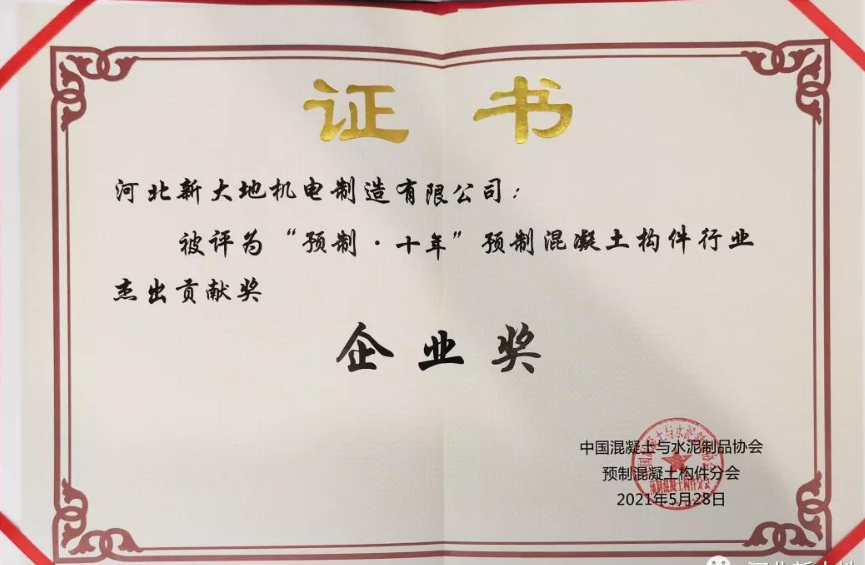 证书
河北新大地机电制造有限公司：
被评为“预制·十年”预制混凝土构件行业
杰出贡献奖
企业奖
中国混凝土与水泥制品协会
预制混凝土构件分会
2021年5月28日